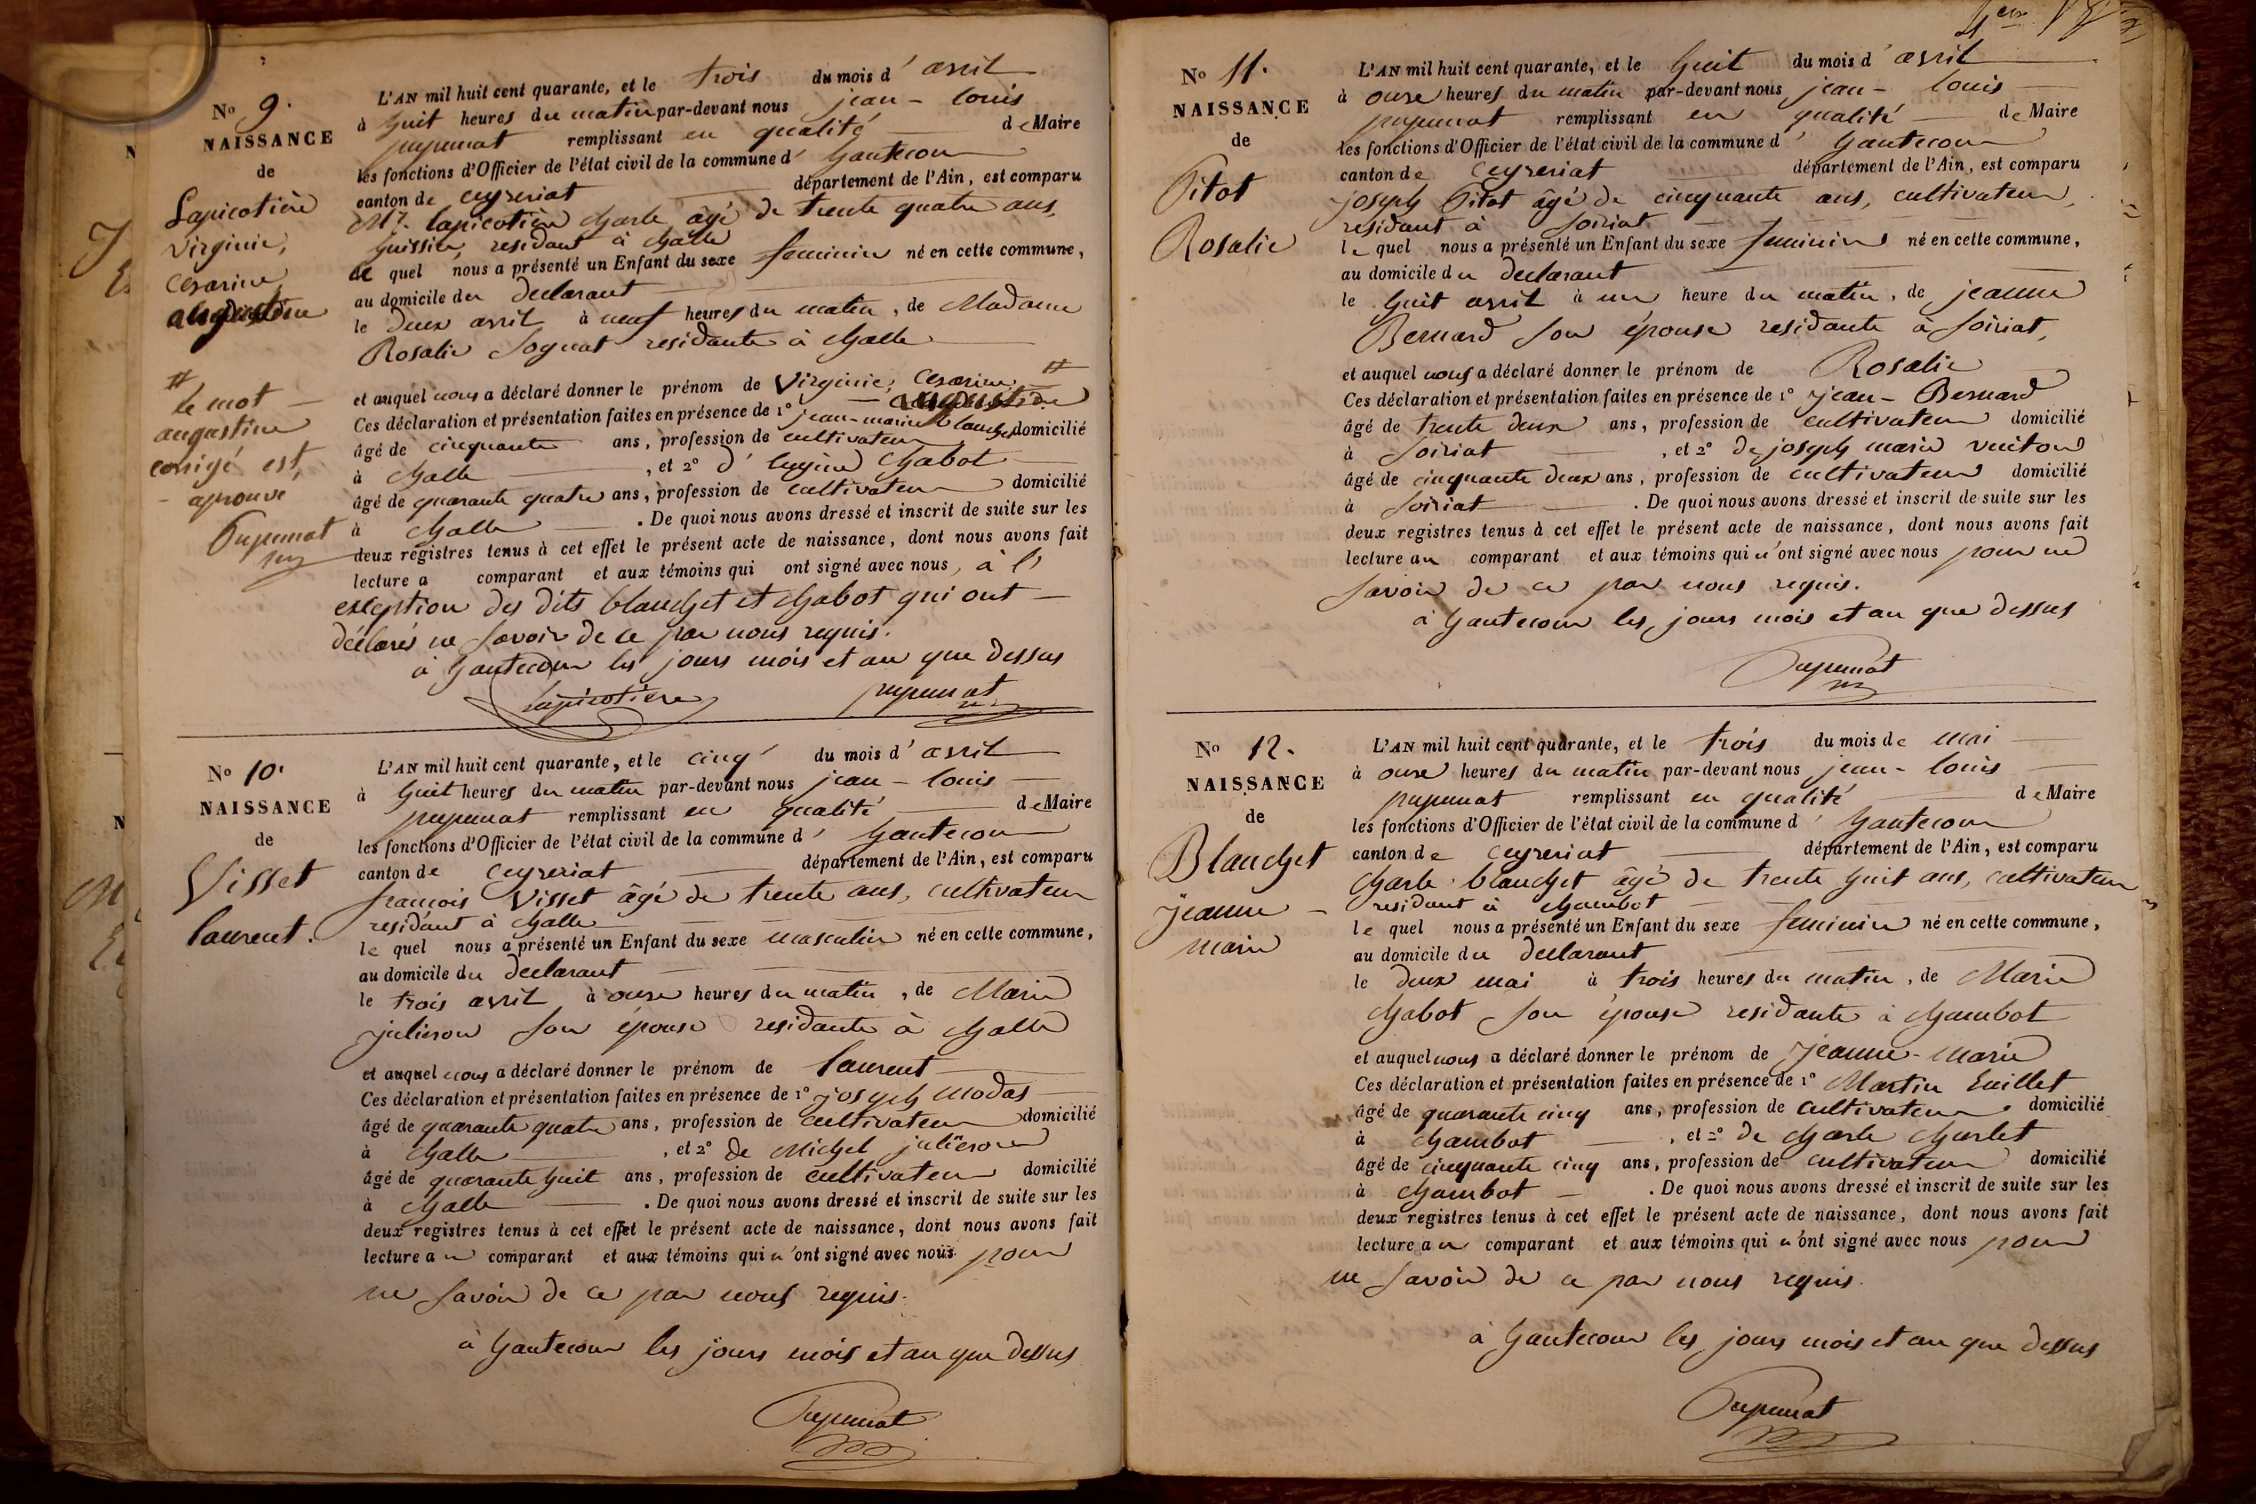 No 9.
NAISSANCE
de
Lapicotière
Virginie,
Cesarine
augustine
#
le mot —
augustine
corrigé est,
- aprouvé
Pupunat
L'AN mil huit cent quarante, et le trois du mois d'avril
à huit heures du matin par-devant nous jean - louis
pupunat remplissant en qualité de Maire
les fonctions d'Officier de l'état civil de la commune d'hautecour
canton de ceyzeriat département de l'Ain, est comparu
Mr. lapicotière charle âgé de trente quatre ans,
huissier, residant à challe
le quel nous a présenté un Enfant du sexe feminin né en cette commune,
au domicile du declarant
le deux avril à neuf heures du matin, de Madame
Rosalie Sognat residante à challe
et auquel nous a déclaré donner le prénom de Virginie, Cesarine #
augustine
Ces déclaration et présentation faites en présence de 1° jean-marie blanchet domicilié
âgé de cinquante ans, profession de cultivateur
à challe , et 2° d'eugène chabot
âgé de quarante quatre ans, profession de cultivateur domicilié
à challe . De quoi nous avons dressé et inscrit de suite sur les
deux registres tenus à cet effet le présent acte de naissance, dont nous avons fait
lecture a comparant et aux témoins qui ont signé avec nous, à l'
exception des dits blanchet et chabot qui ont —
déclarés ne savoir de ce par nous requis.
à hautecour les jours mois et an que dessus
Lapicotière pupunat
No 10.
NAISSANCE
de
Visset
laurent.
L'AN mil huit cent quarante, et le cinq du mois d'avril
à huit heures du matin par-devant nous jean - louis
pupunat remplissant en qualité de Maire
les fonctions d'Officier de l'état civil de la commune d'hautecour
canton de ceyzeriat département de l'Ain, est comparu
françois Visset âgé de trente ans, cultivateur
residant à challe
le quel nous a présenté un Enfant du sexe masculin né en cette commune,
au domicile du declarant
le trois avril à onze heures du matin, de Marie
julieron son épouse residante à challe
et auquel nous a déclaré donner le prénom de laurent
Ces déclaration et présentation faites en présence de 1° joseph modas
âgé de quarante quatre ans, profession de cultivateur domicilié
à challe , et 2° de Michel julieron
âgé de quarante huit ans, profession de cultivateur domicilié
à challe . De quoi nous avons dressé et inscrit de suite sur les
deux registres tenus à cet effet le présent acte de naissance, dont nous avons fait
lecture au comparant et aux témoins qui n'ont signé avec nous pour
ne savoir de ce par nous requis.
à hautecour les jours mois et an que dessus
Pupunat
No 11.
NAISSANCE
de
Pitot
Rosalie
L'AN mil huit cent quarante, et le huit du mois d'avril
à onze heures du matin par-devant nous jean - louis
pupunat remplissant en qualité de Maire
les fonctions d'Officier de l'état civil de la commune d'hautecour
canton de ceyzeriat département de l'Ain, est comparu
joseph Pitot âgé de cinquante ans, cultivateur,
residant à Soiriat
le quel nous a présenté un Enfant du sexe feminin né en cette commune,
au domicile du declarant
le huit avril à un heure du matin, de jeanne
Bernard son épouse residante à Soiriat,
et auquel nous a déclaré donner le prénom de Rosalie
Ces déclaration et présentation faites en présence de 1° jean - Bernard
âgé de trente deux ans, profession de cultivateur domicilié
à Soiriat , et 2° de joseph marie vuiton
âgé de cinquante deux ans, profession de cultivateur domicilié
à Soiriat . De quoi nous avons dressé et inscrit de suite sur les
deux registres tenus à cet effet le présent acte de naissance, dont nous avons fait
lecture au comparant et aux témoins qui n'ont signé avec nous pour ne
savoir de ce par nous requis.
à hautecour les jours mois et an que dessus
Pupunat
No 12.
NAISSANCE
de
Blanchet
jeanne -
marie
L'AN mil huit cent quarante, et le trois du mois de mai
à onze heures du matin par-devant nous jean - louis
pupunat remplissant en qualité de Maire
les fonctions d'Officier de l'état civil de la commune d'hautecour
canton de ceyzeriat département de l'Ain, est comparu
charle blanchet âgé de trente huit ans, cultivateur
residant à chambot
le quel nous a présenté un Enfant du sexe feminin né en cette commune,
au domicile du declarant
le deux mai à trois heures du matin, de Marie
chabot son épouse residante à chambot
et auquel nous a déclaré donner le prénom de jeanne - marie
Ces déclaration et présentation faites en présence de 1° Martin Euillet
âgé de quarante cinq ans, profession de cultivateur domicilié
à chambot , et 2° de charle charlet
âgé de cinquante cinq ans, profession de cultivateur domicilié
à chambot . De quoi nous avons dressé et inscrit de suite sur les
deux registres tenus à cet effet le présent acte de naissance, dont nous avons fait
lecture au comparant et aux témoins qui n'ont signé avec nous pour
ne savoir de ce par nous requis.
à hautecour les jours mois et an que dessus
Pupunat